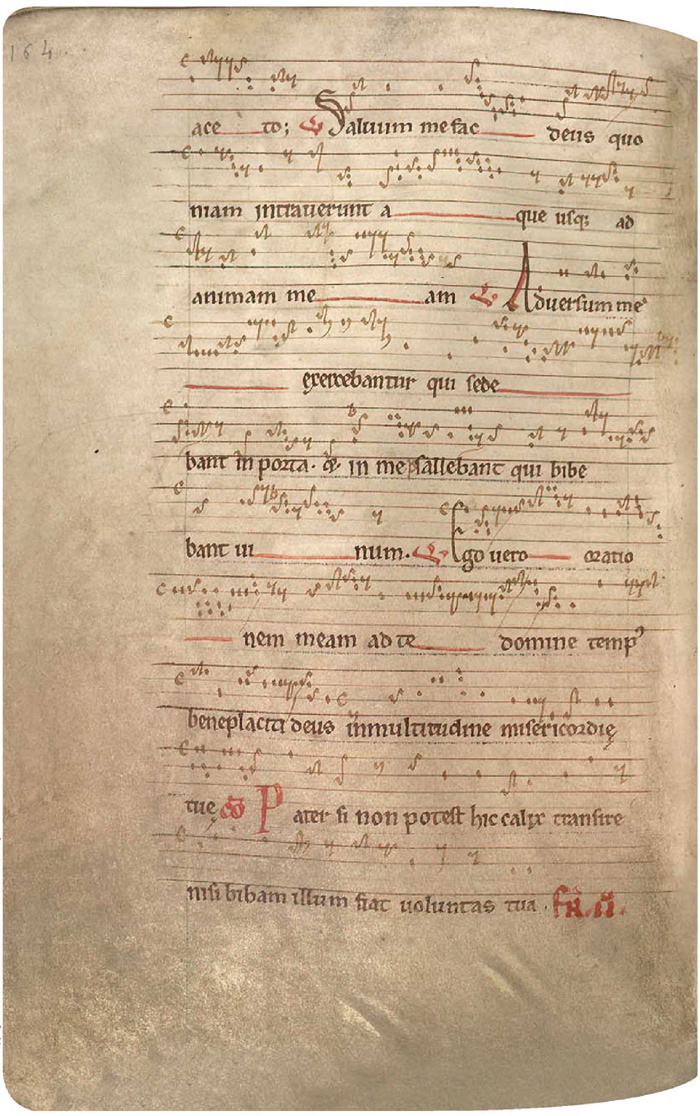 164
aceto; Saluum me fac deus quo
niam intrauerunt aque usq; ad
animam meam Aduersum me
exercebantur qui sede
bant in porta. & in me psallebant qui bibe
bant uinum. Ego uero oratio
nem meam ad te domine temp⁹
beneplaciti deus in multitudine misericordię
tuę Co Pater si non potest hic calix transire
nisi bibam illum fiat uoluntas tua.